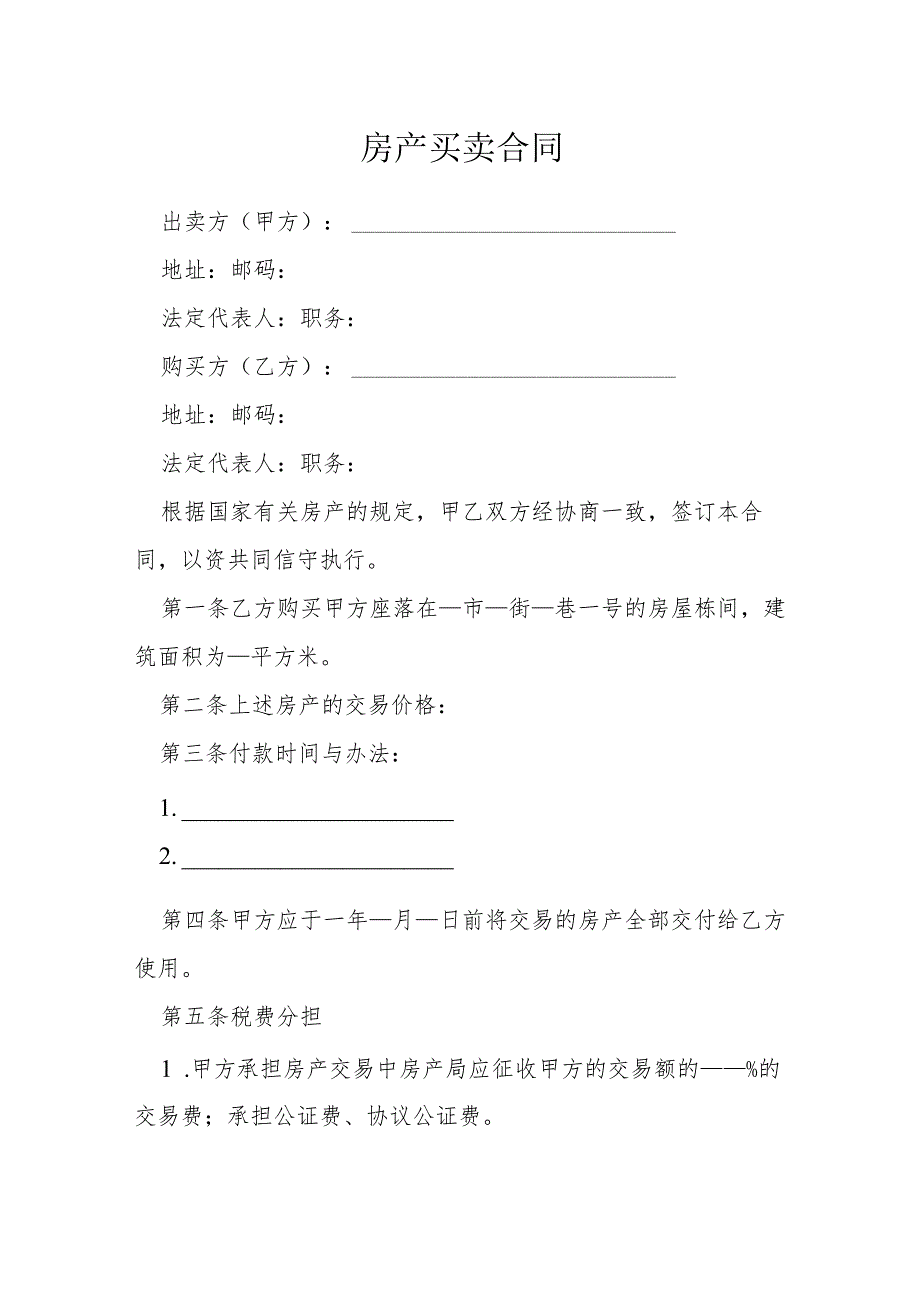 房产买卖合同
出卖方（甲方）：____________________________
地址：邮码：
法定代表人：职务：
购买方（乙方）：____________________________
地址：邮码：
法定代表人：职务：
根据国家有关房产的规定，甲乙双方经协商一致，签订本合
同，以资共同信守执行。
第一条乙方购买甲方座落在—市—街—巷一号的房屋栋间，建
筑面积为—平方米。
第二条上述房产的交易价格：
第三条付款时间与办法：
1.______________________
2.______________________
第四条甲方应于一年—月—日前将交易的房产全部交付给乙方
使用。
第五条税费分担
1 .甲方承担房产交易中房产局应征收甲方的交易额的——%的
交易费；承担公证费、协议公证费。